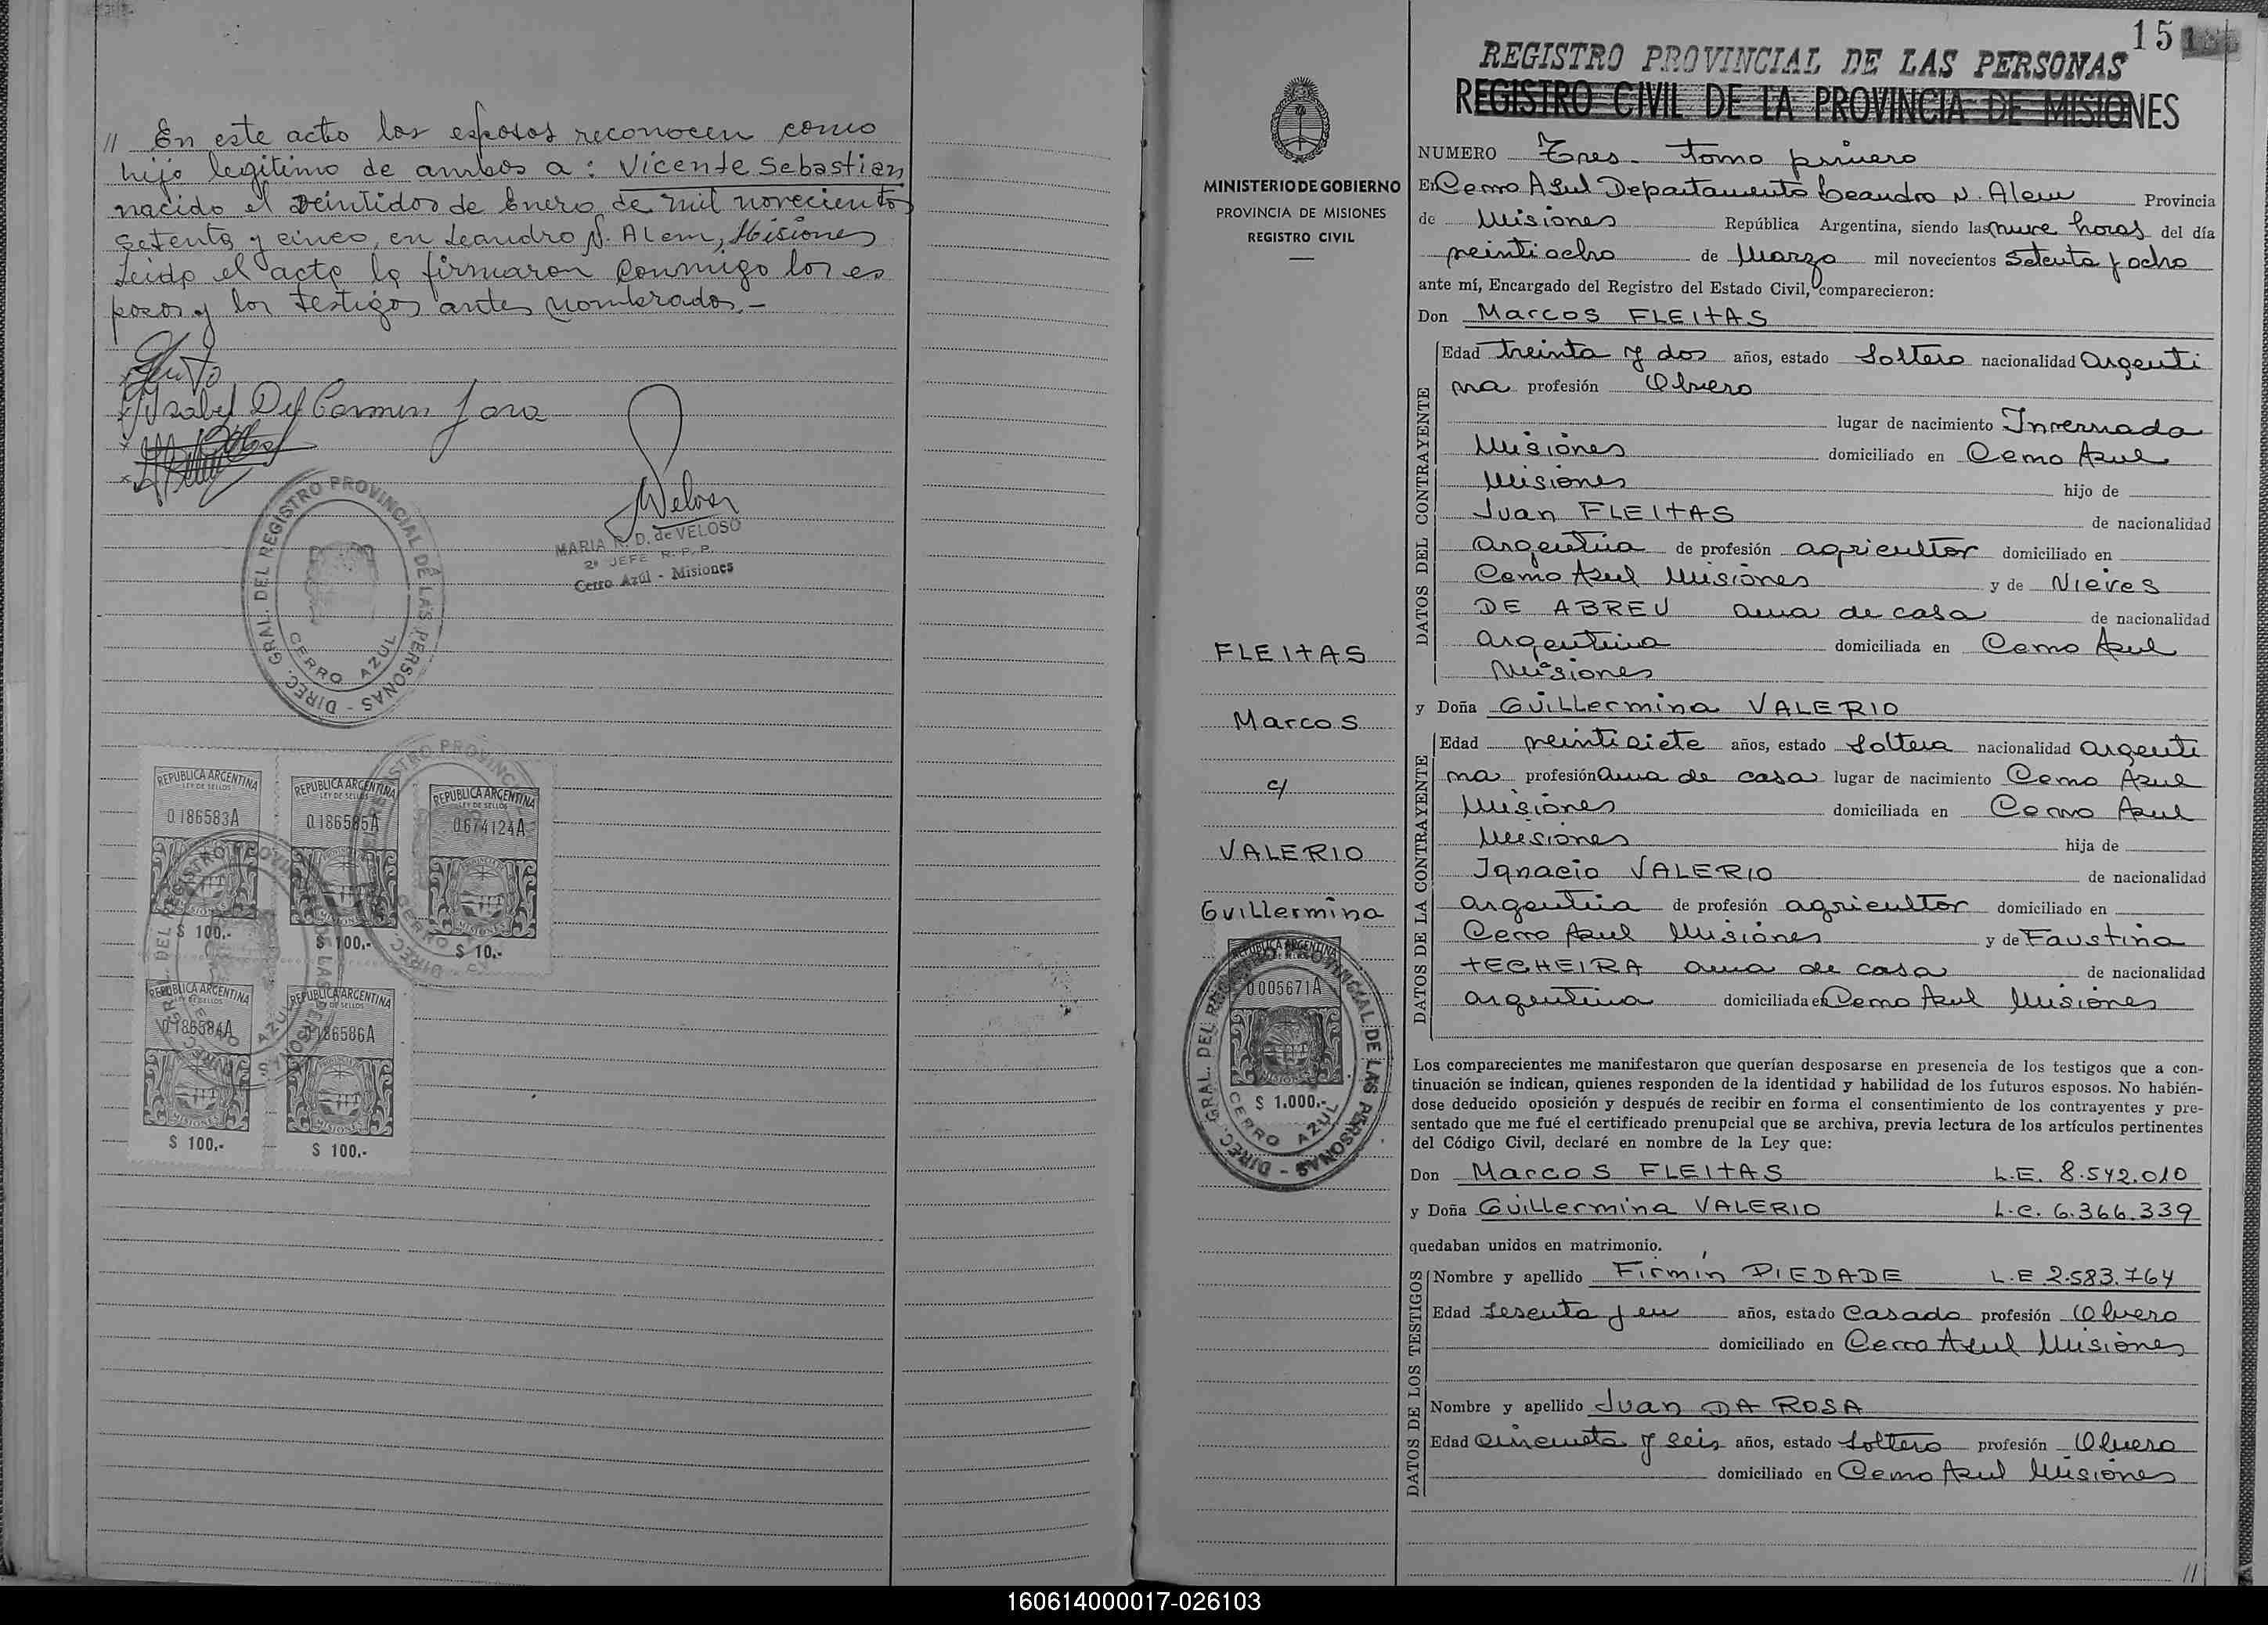 // En este acto los esposos reconocen como
hijo legitimo de ambos a: Vicente Sebastian
nacido el veintidos de Enero de mil novecientos
setenta y cinco, en Leandro N. Alem, Misiones
Leida el acta la firmaron conmigo los es
posos y los testigos antes nombrados.-
Isabel Del Carmen Jara
MARIA R. D. de VELOSO
2º JEFE R. P. P.
Cerro Azúl - Misiones
DIREC. GRAL. DEL REGISTRO PROVINCIAL DE LAS PERSONAS -
CERRO AZUL
REPUBLICA ARGENTINA
LEY DE SELLOS
0186583A
MISIONES
$ 100,-
REPUBLICA ARGENTINA
LEY DE SELLOS
0186585A
MISIONES
$ 100,-
REPUBLICA ARGENTINA
LEY DE SELLOS
0674124A
MISIONES
$ 10,-
REPUBLICA ARGENTINA
LEY DE SELLOS
0186584A
MISIONES
$ 100,-
REPUBLICA ARGENTINA
LEY DE SELLOS
0186586A
MISIONES
$ 100,-
MINISTERIO DE GOBIERNO
PROVINCIA DE MISIONES
REGISTRO CIVIL
FLEITAS
Marcos
c/
VALERIO
Guillermina
REPUBLICA ARGENTINA
0005671A
MISIONES
$ 1.000,-
DIREC. GRAL. DEL REGISTRO PROVINCIAL DE LAS PERSONAS -
CERRO AZUL
15
REGISTRO PROVINCIAL DE LAS PERSONAS
REGISTRO CIVIL DE LA PROVINCIA DE MISIONES
NUMERO Tres - tomo primero
En Cerro Azul Departamento Leandro N. Alem Provincia
de Misiones República Argentina, siendo las nueve horas del día
veintiocho de Marzo mil novecientos Setenta y ocho
ante mí, Encargado del Registro del Estado Civil, comparecieron:
Don Marcos FLEITAS
DATOS DEL CONTRAYENTE
Edad treinta y dos años, estado Soltero nacionalidad argenti
na profesión Obrero
lugar de nacimiento Invernada
Misiones domiciliado en Cerro Azul
Misiones hijo de
Juan FLEITAS de nacionalidad
argentina de profesión agricultor domiciliado en
Cerro Azul Misiones y de Nieves
DE ABREU ama de casa de nacionalidad
argentina domiciliada en Cerro Azul
Misiones
y Doña Guillermina VALERIO
DATOS DE LA CONTRAYENTE
Edad veintisiete años, estado Soltera nacionalidad argenti
na profesión ama de casa lugar de nacimiento Cerro Azul
Misiones domiciliada en Cerro Azul
Misiones hija de
Ignacio VALERIO de nacionalidad
argentina de profesión agricultor domiciliado en
Cerro Azul Misiones y de Faustina
TECHEIRA ama de casa de nacionalidad
argentina domiciliada en Cerro Azul Misiones
Los comparecientes me manifestaron que querían desposarse en presencia de los testigos que a con-
tinuación se indican, quienes responden de la identidad y habilidad de los futuros esposos. No habién-
dose deducido oposición y después de recibir en forma el consentimiento de los contrayentes y pre-
sentado que me fué el certificado prenupcial que se archiva, previa lectura de los artículos pertinentes
del Código Civil, declaré en nombre de la Ley que:
Don Marcos FLEITAS L.E. 8.542.010
y Doña Guillermina VALERIO L.C. 6.366.339
quedaban unidos en matrimonio.
DATOS DE LOS TESTIGOS
Nombre y apellido Firmín PIEDADE L.E 2.583.764
Edad sesenta y un años, estado Casado profesión Obrero
domiciliado en Cerro Azul Misiones
Nombre y apellido Juan DA ROSA
Edad cincuenta y seis años, estado Soltero profesión Obrero
domiciliado en Cerro Azul Misiones
//
160614000017-026103